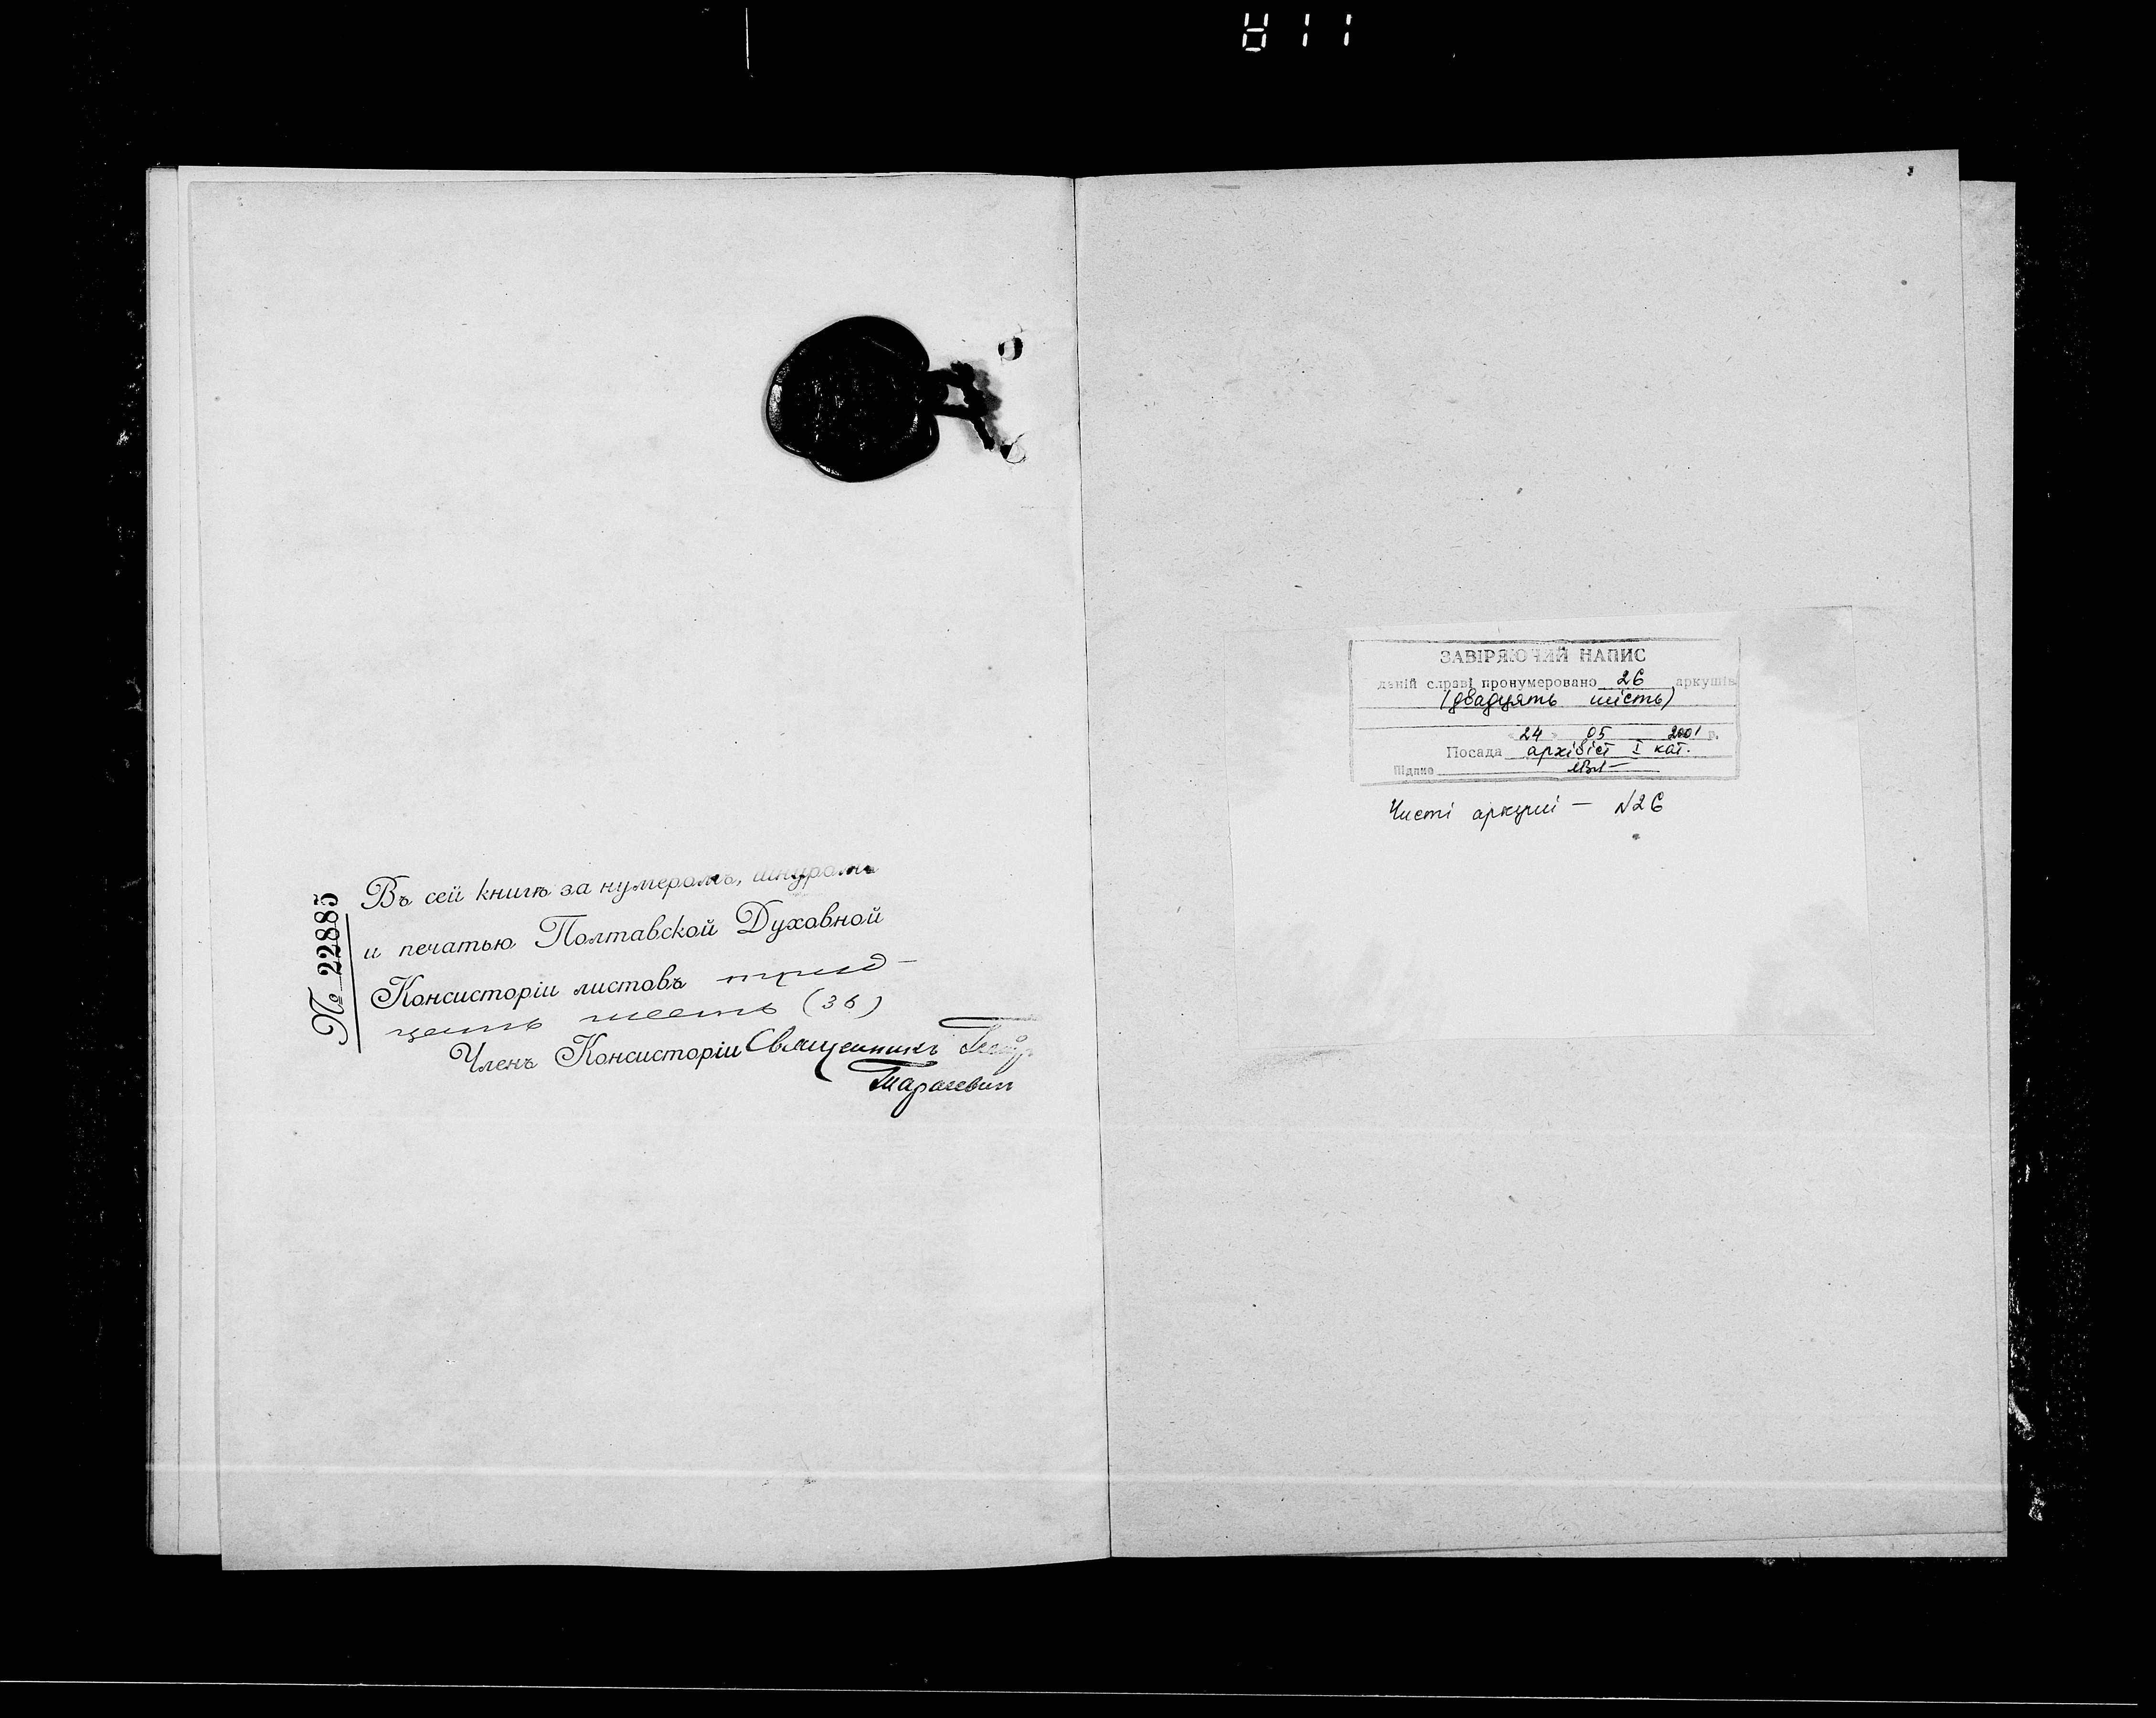 № 22885
Въ сей книгѣ за нумеромъ, шнуромъ
и печатью Полтавской Духовной
Консисторіи листовъ трид-
цать шесть (36)
Членъ Консисторіи Священникъ
Тарасевич
ЗАВІРЯЮЧИЙ НАПИС
даній справі пронумеровано 26 аркушів
(двадцять шість)
24 05 2001 р.
Посада архівіст I кат.
Підпис
Чисті аркуші — N26